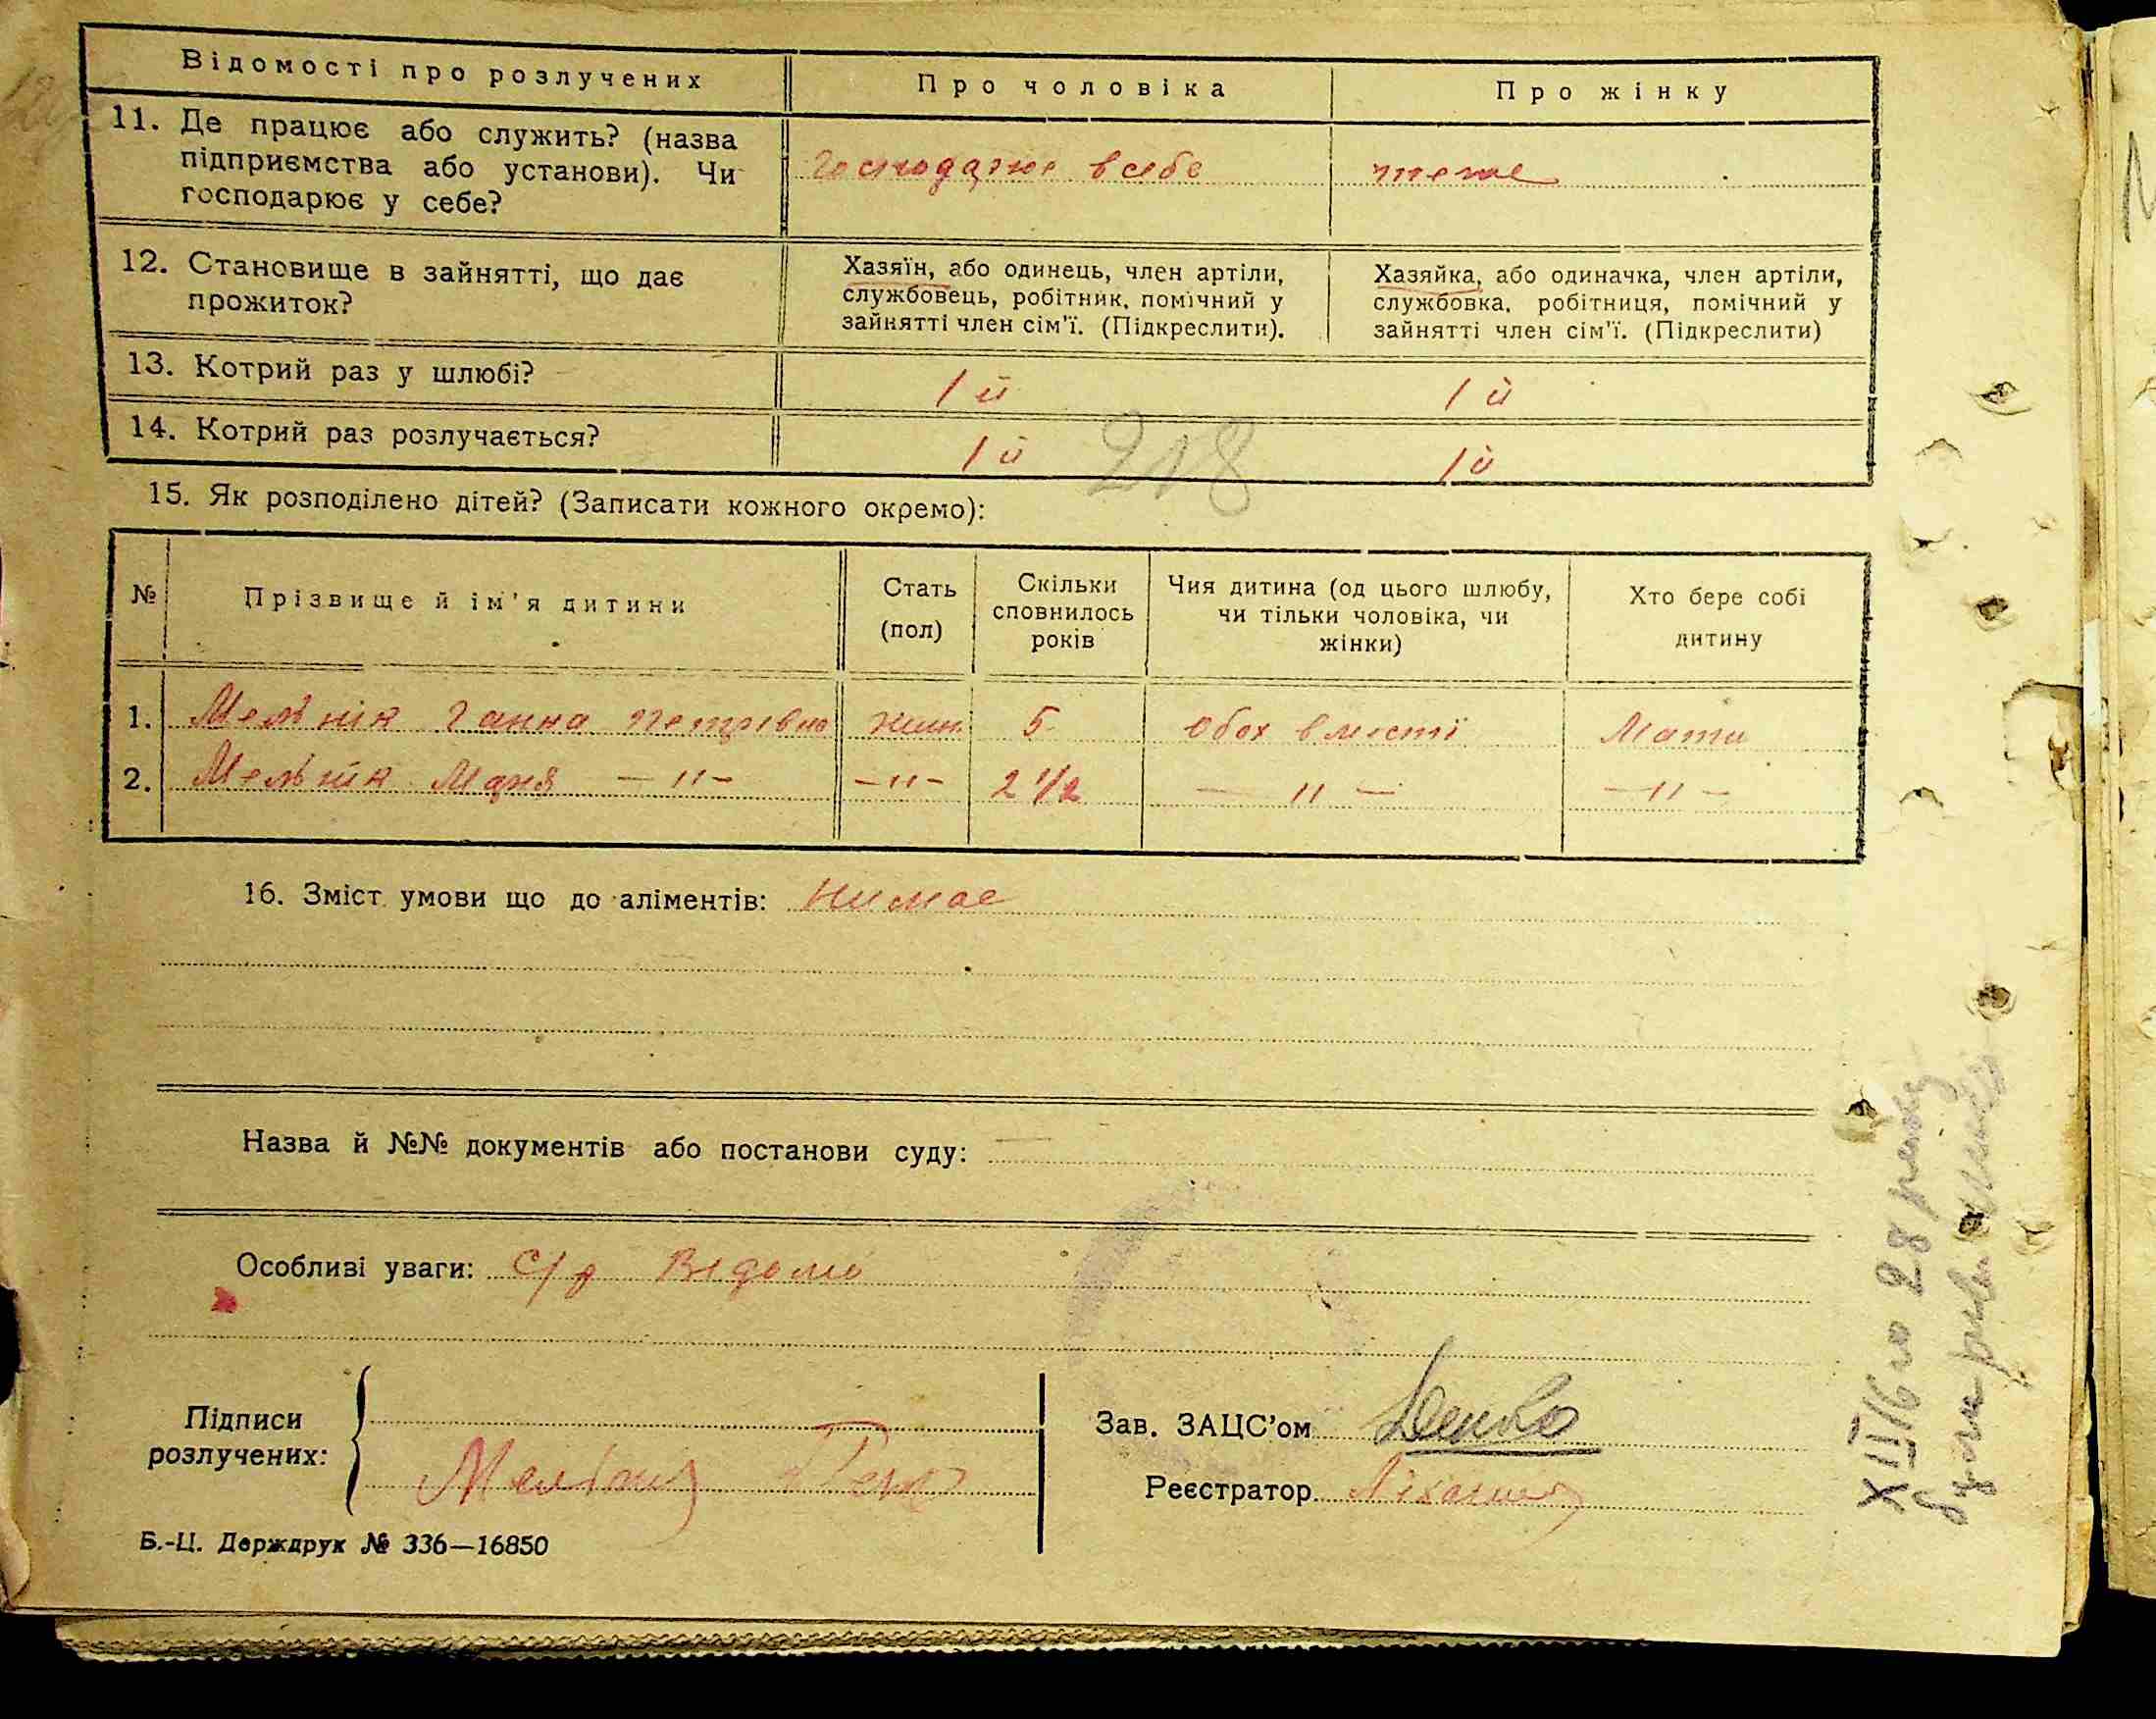 Відомості про розлучених
Про чоловіка
Про жінку
11. Де працює або служить? (назва
підприємства або установи). Чи
господарює у себе?
Господарює в себе
теже
12. Становище в зайнятті, що дає
прожиток?
Хазяїн, або одинець, член артіли,
службовець, робітник, помічний у
зайнятті член сім'ї. (Підкреслити).
Хазяйка, або одиначка, член артіли,
службовка, робітниця, помічний у
зайнятті член сім'ї. (Підкреслити)
13. Котрий раз у шлюбі?
1й
1й
14. Котрий раз розлучається?
1й
1й
218
15. Як розподілено дітей? (Записати кожного окремо):
№
Прізвище й ім'я дитини
Стать
(пол)
Скільки
сповнилось
років
Чия дитина (од цього шлюбу,
чи тільки чоловіка, чи
жінки)
Хто бере собі
дитину
1. Мельнік Ганна Петрівна жин. 5 обох вместі Мати
2. Мельнік Маня —"— —"— 2 1/2 —"— —"—
16. Зміст умови що до аліментів: Нимае
Назва й №№ документів або постанови суду: —
Особливі уваги: с/р Відомо
Підписи
розлучених:
Мельник
Зав. ЗАЦС'ом
Реєстратор
Б.-Ц. Держдрук № 336—16850
28 року